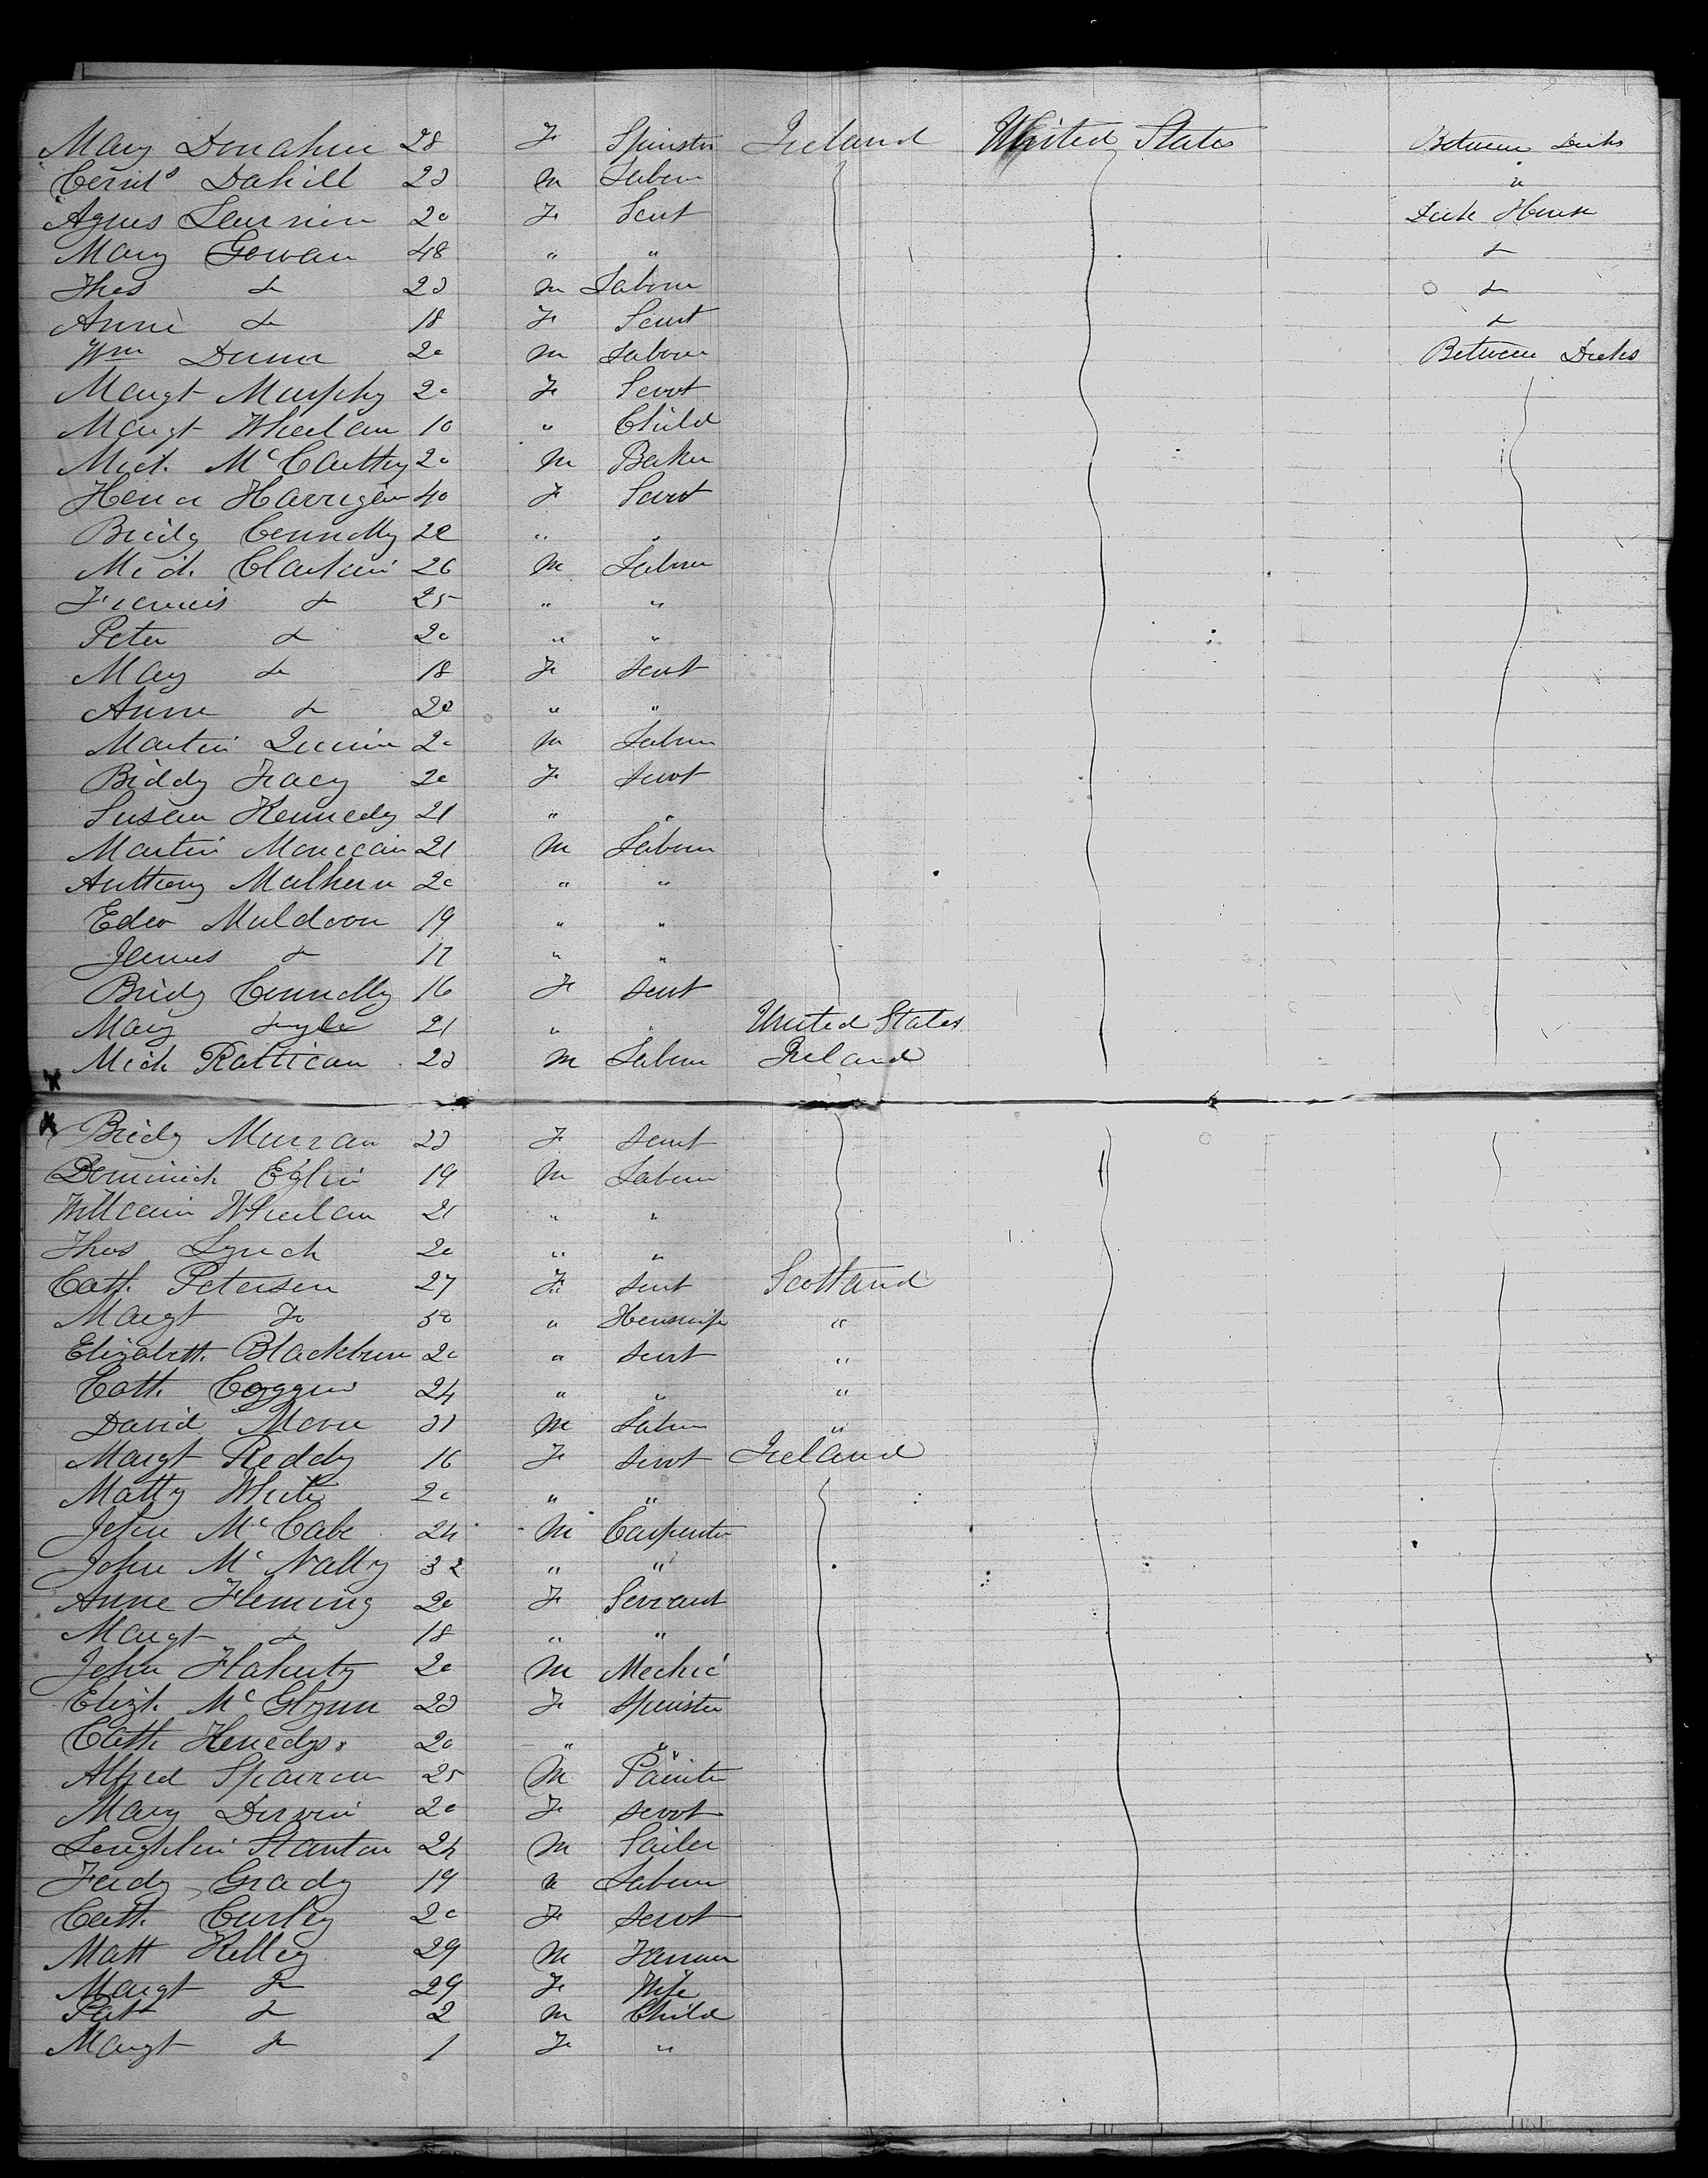 Mary Donahue 28 F Spinster Ireland United States Between Decks
Dahill 23 M Labour "
Agnes 20 F Servt Deck House
Mary Gowan 48 " " do
Thos do 23 M Labour do
Anne do 18 F Servt do
Wm 20 M Labour Between Decks
Margt Murphy 20 F Servt
Margt Wheelan 10 " Child
Mich. McCarthy 20 M Baker
Harrigan 40 F Servt
Bridg Connolly 22 " "
Mich. 26 M Labour
Francis do 25 " "
Peter do 20 " "
Mary do 18 F Servt
Anne do 20 " "
Martin Quinn 20 M Labour
Biddy Tracy 20 F Servt
Susan Kennedy 21 " "
Martin 21 M Labour
Anthony Mulhern 20 " "
Edw Muldoon 19 " "
James do 17 " "
Bridg Connolly 16 F Servt
Mary 21 " " United States
Mich Rattican 23 M Labour Ireland
X
X Bridg Murran 23 F Servt
Dominick Eglin 19 M Labour
William Wheelan 21 " "
Thos Lynch 20 " "
Cath. Petersen 27 F Servt Scotland
Margt Do 50 " Housewife "
Elizabeth Blackburn 20 " Servt "
Cath. 24 " " "
David 31 M Labour "
Margt Reddy 16 F Servt Ireland
Matty White 20 " "
John McCabe 24 M Carpenter
John McNally 32 " "
Anne Fleming 20 F Servant
Margt do 18 " "
John Flaherty 20 M Mechic
Elizh. McGlynn 23 F Spinster
Cath. Kenedy 20 " "
Alfred 25 M Painter
Mary Dirvin 20 F Servt
Loughlin Stanton 24 M Sailer
Ferdy Grady 19 " Labour
Cath. Curley 20 F Servt
Matt Kelley 29 M Farmer
Margt do 29 F Wife
Patt do 2 M Child
Margt do 1 F "